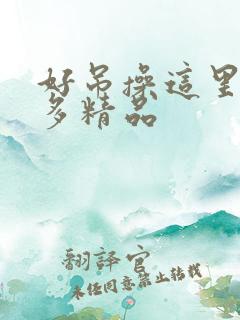 好吊操這里
多精品
翻譯官
未经同意禁止转载